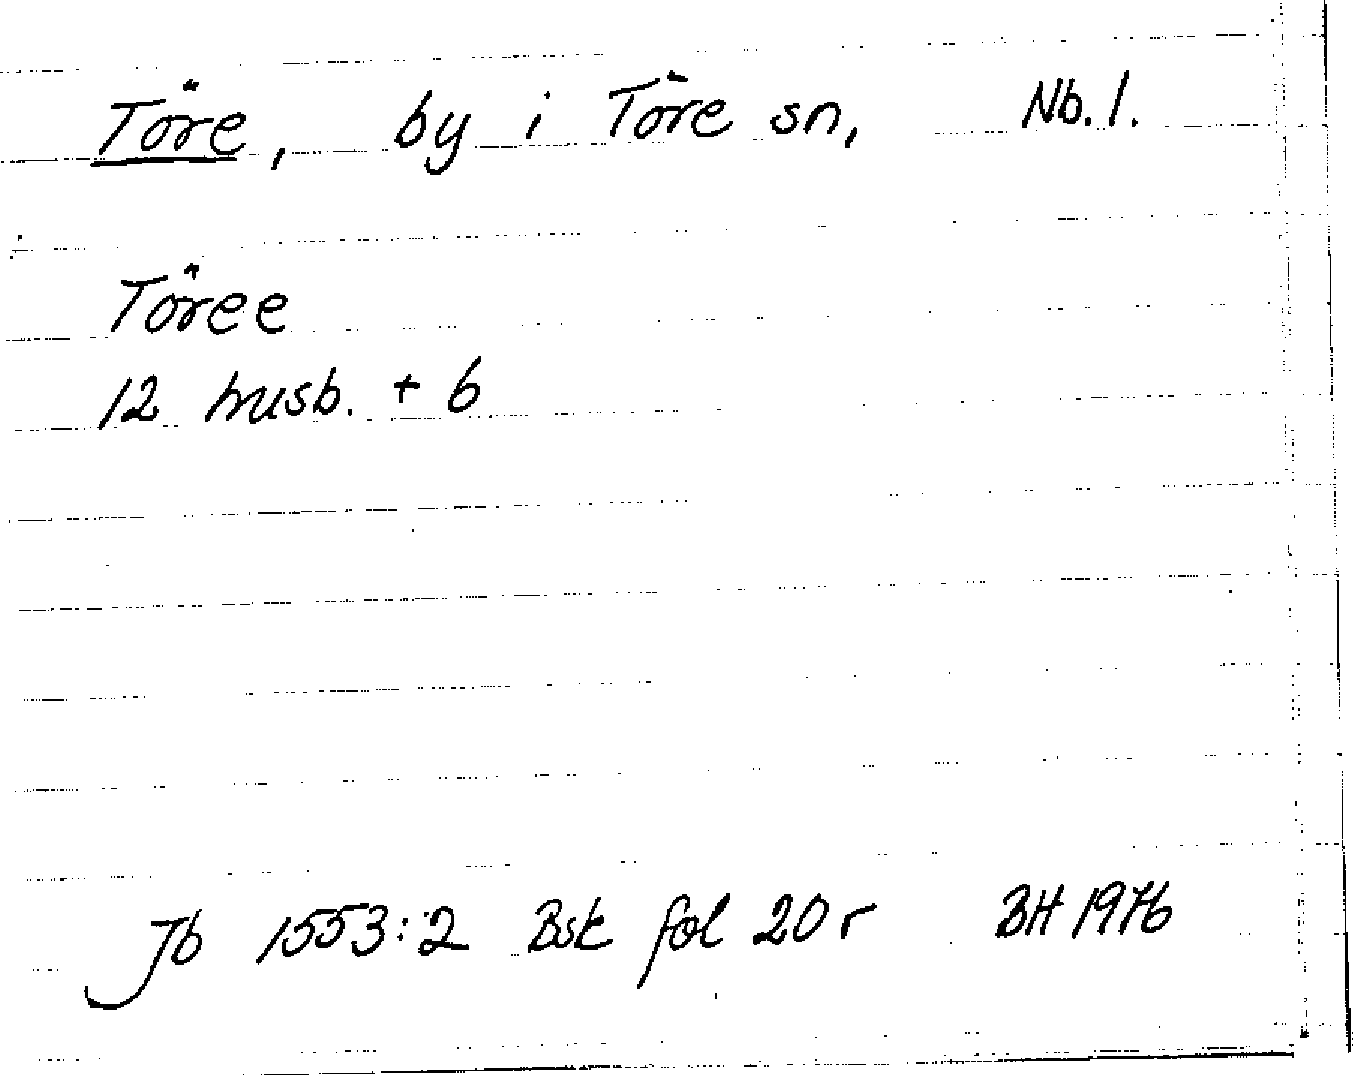 Töre, by i Töre sn, Nb. l.
Töree
12 husb. + 6
Jb 1553:2 Bsk fol 20 r BH 1976